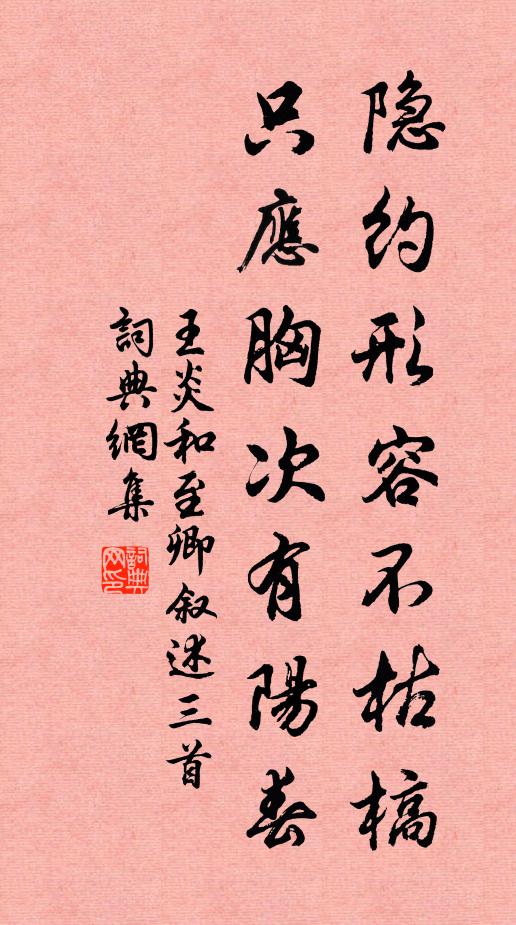 隐約形容不枯槁
只應胸次有陽春
王炎和至卿叙述三首
詞典網集
詞典网印